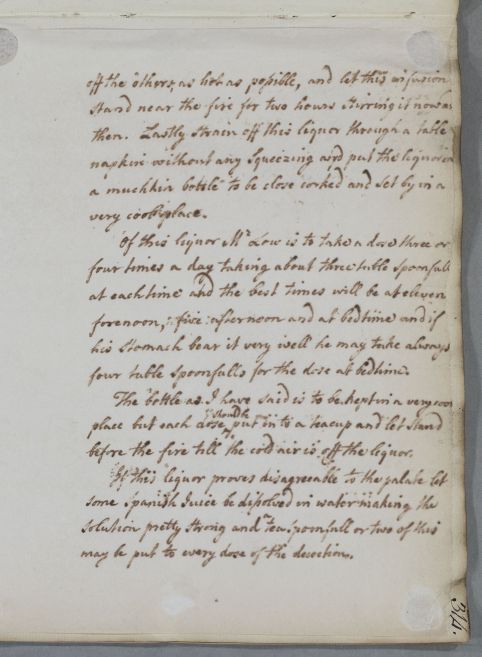 off the others, as hot as possible, and let this infusion
stand near the fire for two hours stirring it now an
then. Lastly strain off this liquor through a table
napkin without any squeezing and put the liquor in
a muchkin bottle to be close corked and set by in a
very cool place.
Of this liquor Mr Low is to take a dose three or
four times a day taking about three table spoonfulls
at each time and the best times will be at eleven
forenoon, five afternoon and at bedtime and if
his stomach bear it very well he may take always
four table spoonfulls for the dose at bedtime.
The bottle as I have said is to be kept in a very cool
should be
place but each dose put in to a teacup and let stand
before the fire till the cold air is off the liquor.
If this liquor proves disagreeable to the palate let
some Spanish Juice be dissolved in water making the
solution pretty strong and a tea spoonfull or two of this
may be put to every dose of the decoction.
314.